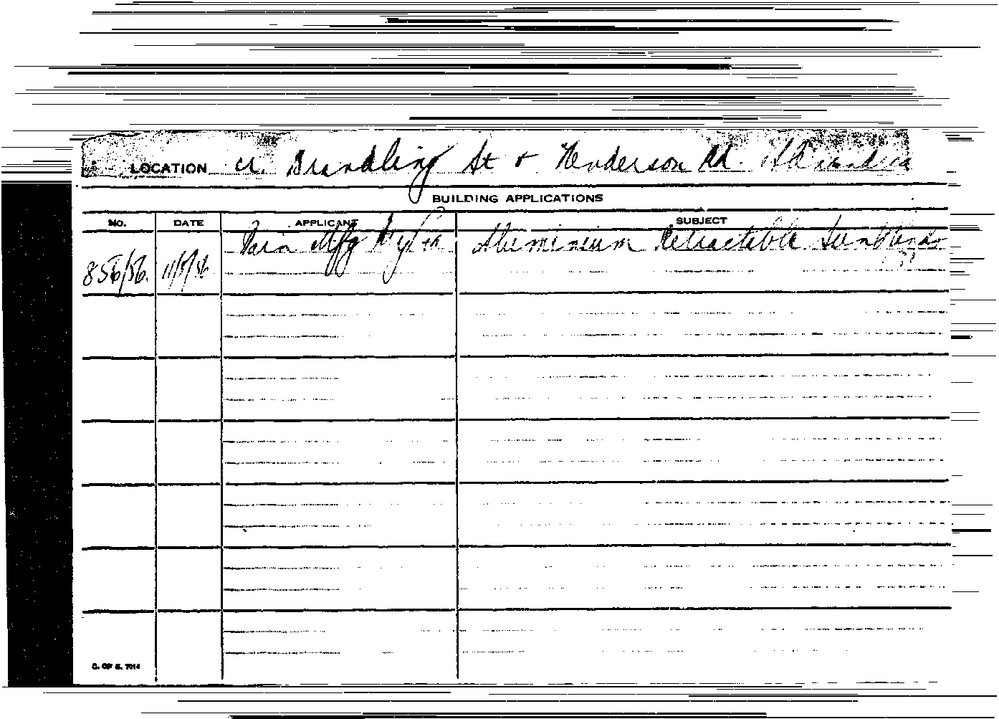 LOCATION cr. Brandling St & Henderson Rd. Alexandria
BUILDING APPLICATIONS
NO. DATE APPLICANT SUBJECT
Pain Mfg Aluminium Retractable Sunblinds
856/56. 11/5/56
C. OF S. 7014